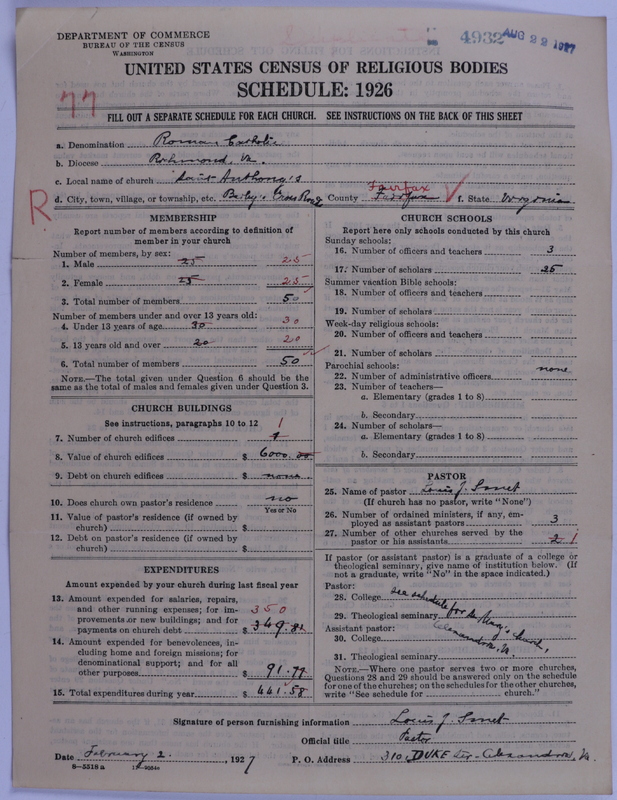 DEPARTMENT OF COMMERCE
BUREAU OF THE CENSUS
WASHINGTON
4932 AUG 22 1927
UNITED STATES CENSUS OF RELIGIOUS BODIES
SCHEDULE: 1926
77
FILL OUT A SEPARATE SCHEDULE FOR EACH CHURCH. SEE INSTRUCTIONS ON THE BACK OF THIS SHEET
a. Denomination Roman Catholic
b. Diocese Richmond, Va.
c. Local name of church Saint Anthony's
R d. City, town, village, or township, etc. Baily's Cross Roads County Fairfax Fairfax f. State Virginia
MEMBERSHIP
Report number of members according to definition of
member in your church
Number of members, by sex:
1. Male 25 25
2. Female 25 25
3. Total number of members 50
Number of members under and over 13 years old:
4. Under 13 years of age 30 30
5. 13 years old and over 20 20
6. Total number of members 50
NOTE.—The total given under Question 6 should be the
same as the total of males and females given under Question 3.
CHURCH BUILDINGS
See instructions, paragraphs 10 to 12
7. Number of church edifices 1 1
8. Value of church edifices $ 6000.00
9. Debt on church edifices $ none
10. Does church own pastor's residence no
Yes or No
11. Value of pastor's residence (if owned by
church) $
12. Debt on pastor's residence (if owned by
church) $
EXPENDITURES
Amount expended by your church during last fiscal year
13. Amount expended for salaries, repairs,
and other running expenses; for im-
provements or new buildings; and for
payments on church debt $ 350 349.81
14. Amount expended for benevolences, in-
cluding home and foreign missions; for
denominational support; and for all
other purposes $ 91.77
15. Total expenditures during year $ 441.58
CHURCH SCHOOLS
Report here only schools conducted by this church
Sunday schools:
16. Number of officers and teachers 3
17. Number of scholars 25
Summer vacation Bible schools:
18. Number of officers and teachers
19. Number of scholars
Week-day religious schools:
20. Number of officers and teachers
21. Number of scholars
Parochial schools: none
22. Number of administrative officers
23. Number of teachers—
a. Elementary (grades 1 to 8)
b. Secondary
24. Number of scholars—
a. Elementary (grades 1 to 8)
b. Secondary
PASTOR
25. Name of pastor Louis J. Smet
(If church has no pastor, write "None")
26. Number of ordained ministers, if any, em-
ployed as assistant pastors 3
27. Number of other churches served by the
pastor or his assistants 2 1
If pastor (or assistant pastor) is a graduate of a college or
theological seminary, give name of institution below. (If
not a graduate, write "No" in the space indicated.)
Pastor:
28. College see schedule for St. Mary's church,
29. Theological seminary Alexandria, Va.
Assistant pastor:
30. College
31. Theological seminary
NOTE.—Where one pastor serves two or more churches,
Questions 28 and 29 should be answered only on the schedule
for one of the churches; on the schedules for the other churches,
write "See schedule for church."
Signature of person furnishing information Louis J. Smet
Official title Pastor
Date February 2, 1927 P. O. Address 310, DUKE Str. Alexandria, Va.
8—5518 a